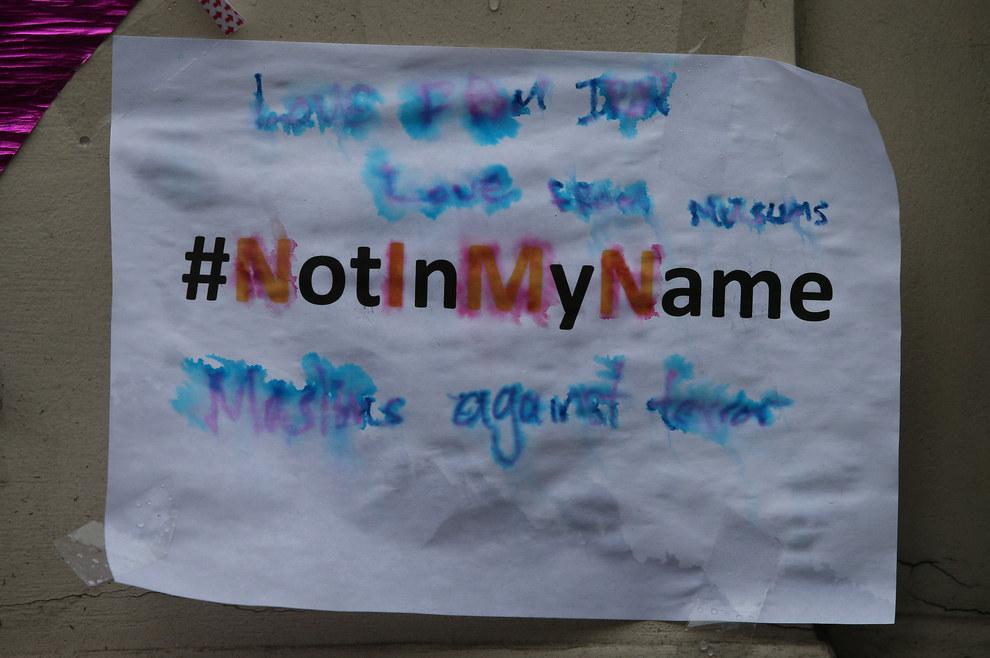 Love FROM
Love FROM MUSLIMS
#NotInMyName
Muslims against terror